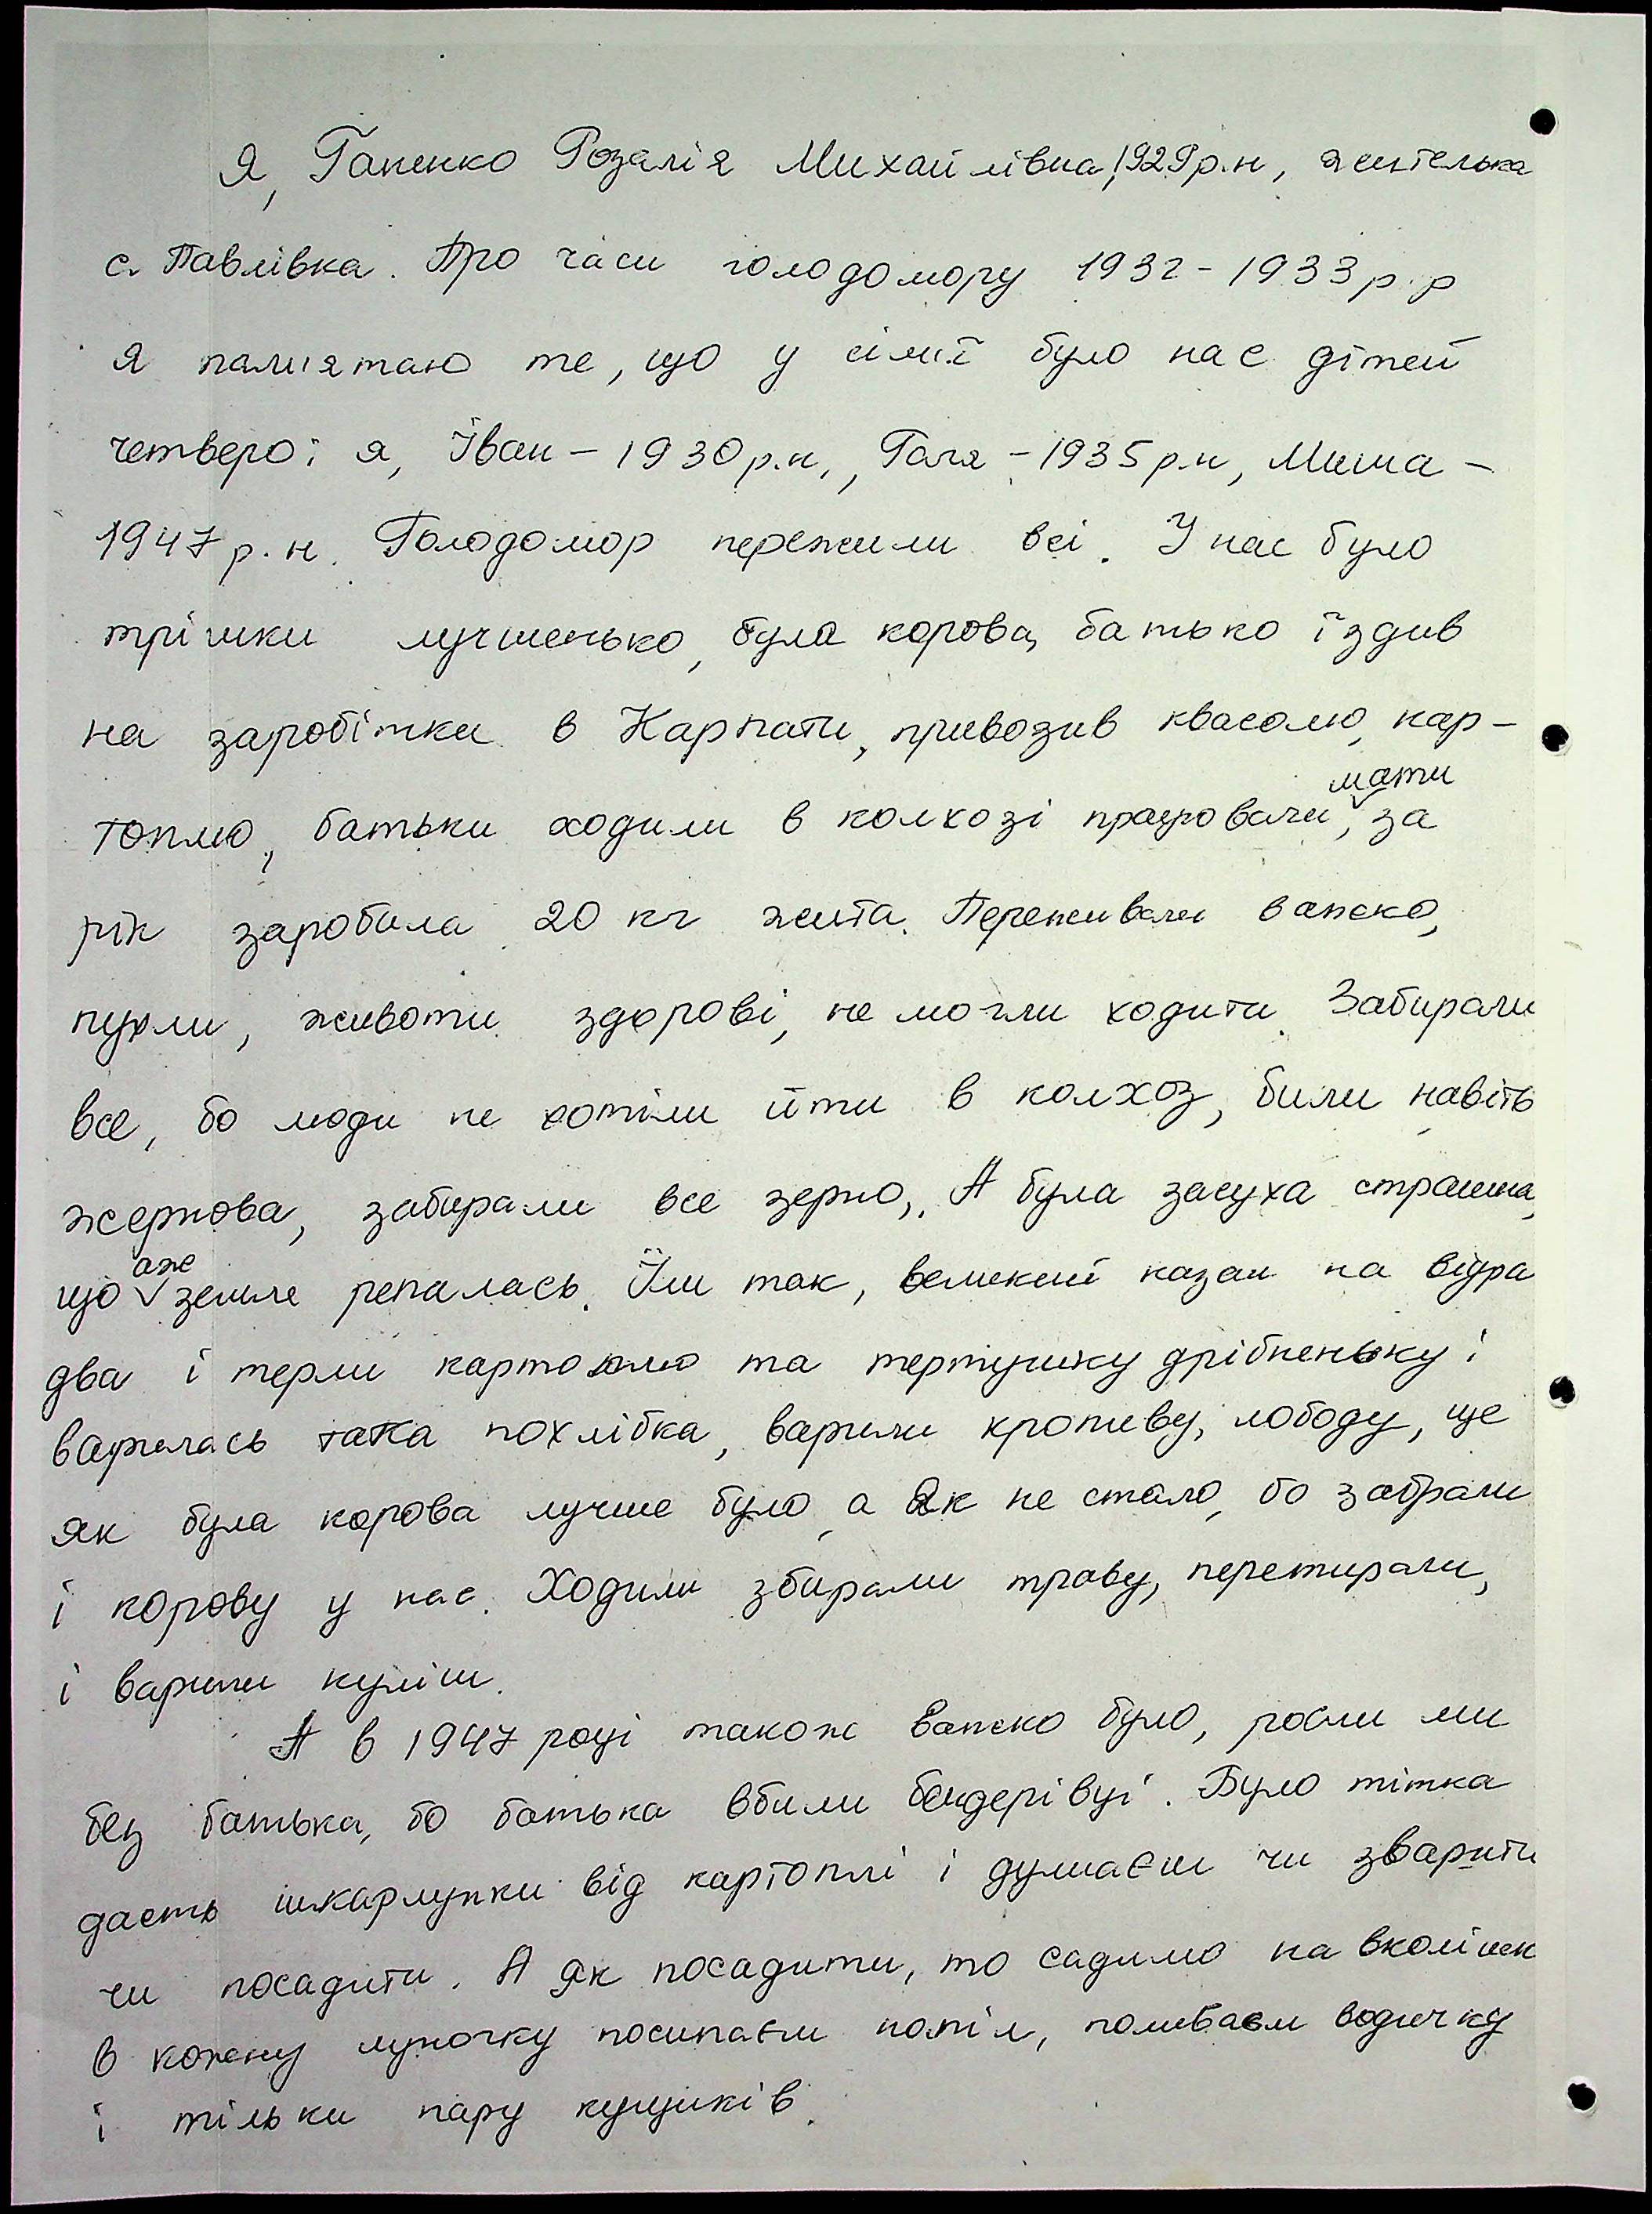 Я, Гапенко Розалія Михайлівна, 1929р.н, жителька
с. Павлівка. Про часи голодомору 1932-1933р.р
я пам'ятаю те, що у сім'ї було нас дітей
четверо: я, Іван - 1930р.н., Галя - 1935р.н, Миша -
1947р.н. Голодомор пережили всі. У нас було
трішки лучшенько, була корова, батько їздив
на заробітки в Карпати, привозив квасолю, кар-
топлю, батьки ходили в колхозі працювали, мати за
рік заробила 20 кг жита. Переживали важко,
пухли, животи здорові, не могли ходити. Забирали
все, бо люди не хотіли йти в колхоз, били навіть
жернова, забирали все зерно,. А була засуха страшна,
що аже земля репалась. Їли так, великий казан на відра
два і терли картоплю та тертушку дрібненьку і
варилась така похлібка, варили кропиву, лободу, ще
як була корова лучше було, а як не стало, бо забрали
і корову у нас. Ходили збирали траву, перетирали,
і варили куліш.
А в 1947 році також важко було, росли ми
без батька, бо батька вбили бендерівці. Було тітка
дасть шкарлупки від картоплі і думаєш чи зварити
чи посадити. А як посадити, то садимо на вколішк
в кожну луночку посипаєм попіл, поливаєм водичку
і тільки пару кущиків.